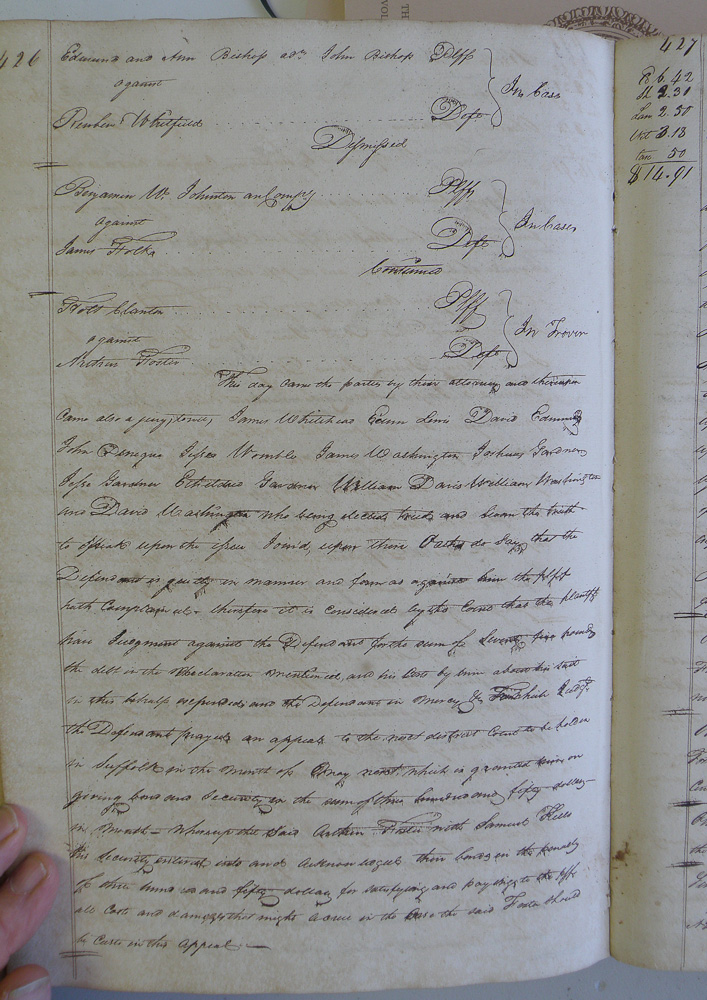 426
Edmund and Ann Bishop adm John Bishop Plffs
against
In Case
Reuben Whitfield Deft
Dismissed
Benjamin W. Johnston and Compy Plffs
against
In Case
James Folk Deft
Continued
Holt Clanton Plff
against
In Trover
Arthur Foster Deft
This day came the parties by their attorneys and thereupon
came also a jury, towit, James Whitehead Lewis David Edmunds
John Womble James Washington Joshua Gardner
Jesse Gardner Etheldred Gardner William Davis William Washington
and David Washington who being elected tried and sworn the truth
to speak upon the issue Joined, upon their Oaths do say that the
Defendant is guilty in manner and form as against him the plff
hath Complained. therefore it is considered by the Court that the plaintiff
have Judgment against the Defendant for the sum of Seventy five pounds
the debt in the declaration mentioned, and his Costs by him about his suit
in this behalf expended and the Defendant in Mercy &c From which Judgt.
the Defendant prayed an appeal to the next district Court to be holden
in Suffolk in the month of May next, which is granted him on
giving bond and Security in the sum of three hundred and fifty dollars
in Month whereup the said Arthur Foster with Samuel
his Security entered into and acknowledged their bond in the penalty
of three hundred and fifty dollars for satisfying and paying to the plff
all Costs and damages that might accrue in the Case the said Foster should
be Cast in this appeal
427
6.42
2.31
2.50
3.18
tax 50
$14.91